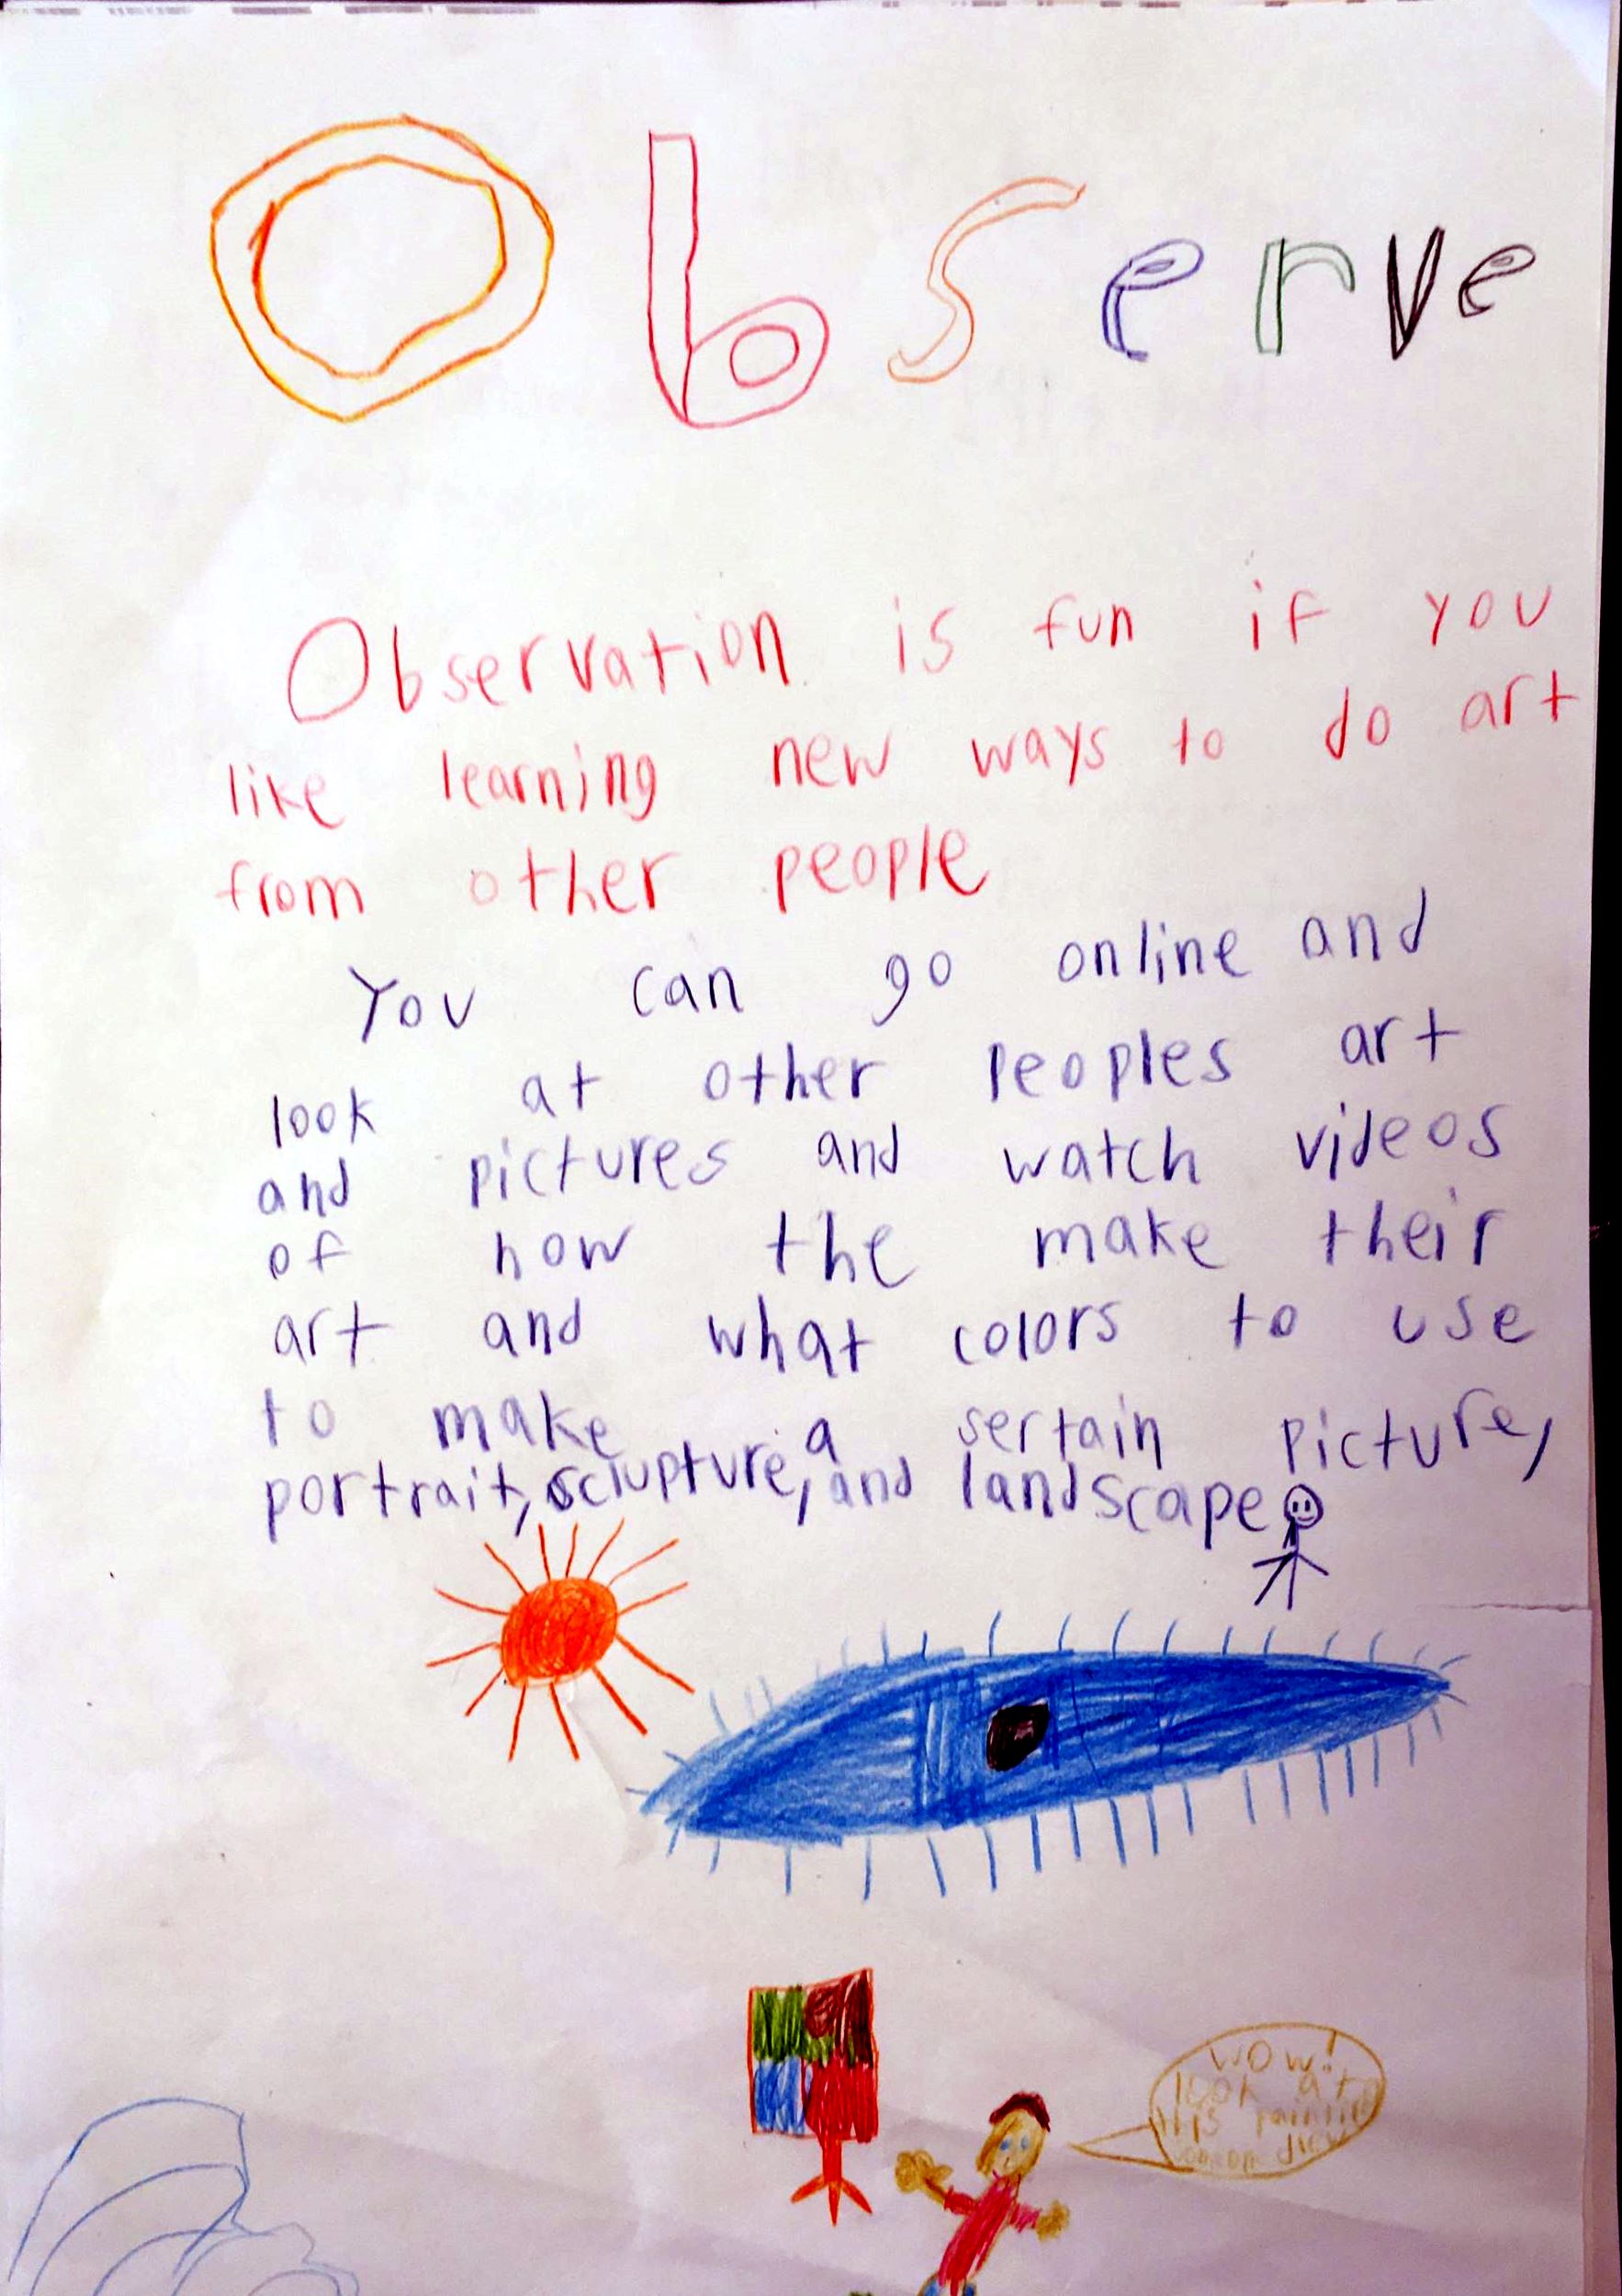 Observe
Observation is fun if you
like learning new ways to do art
from other people
You can go online and
look at other peoples art
and pictures and watch videos
of how the make their
art and what colors to use
to make a sertain picture,
portrait, sclupture, and landscape
wow!
look at
this painting
someone drew